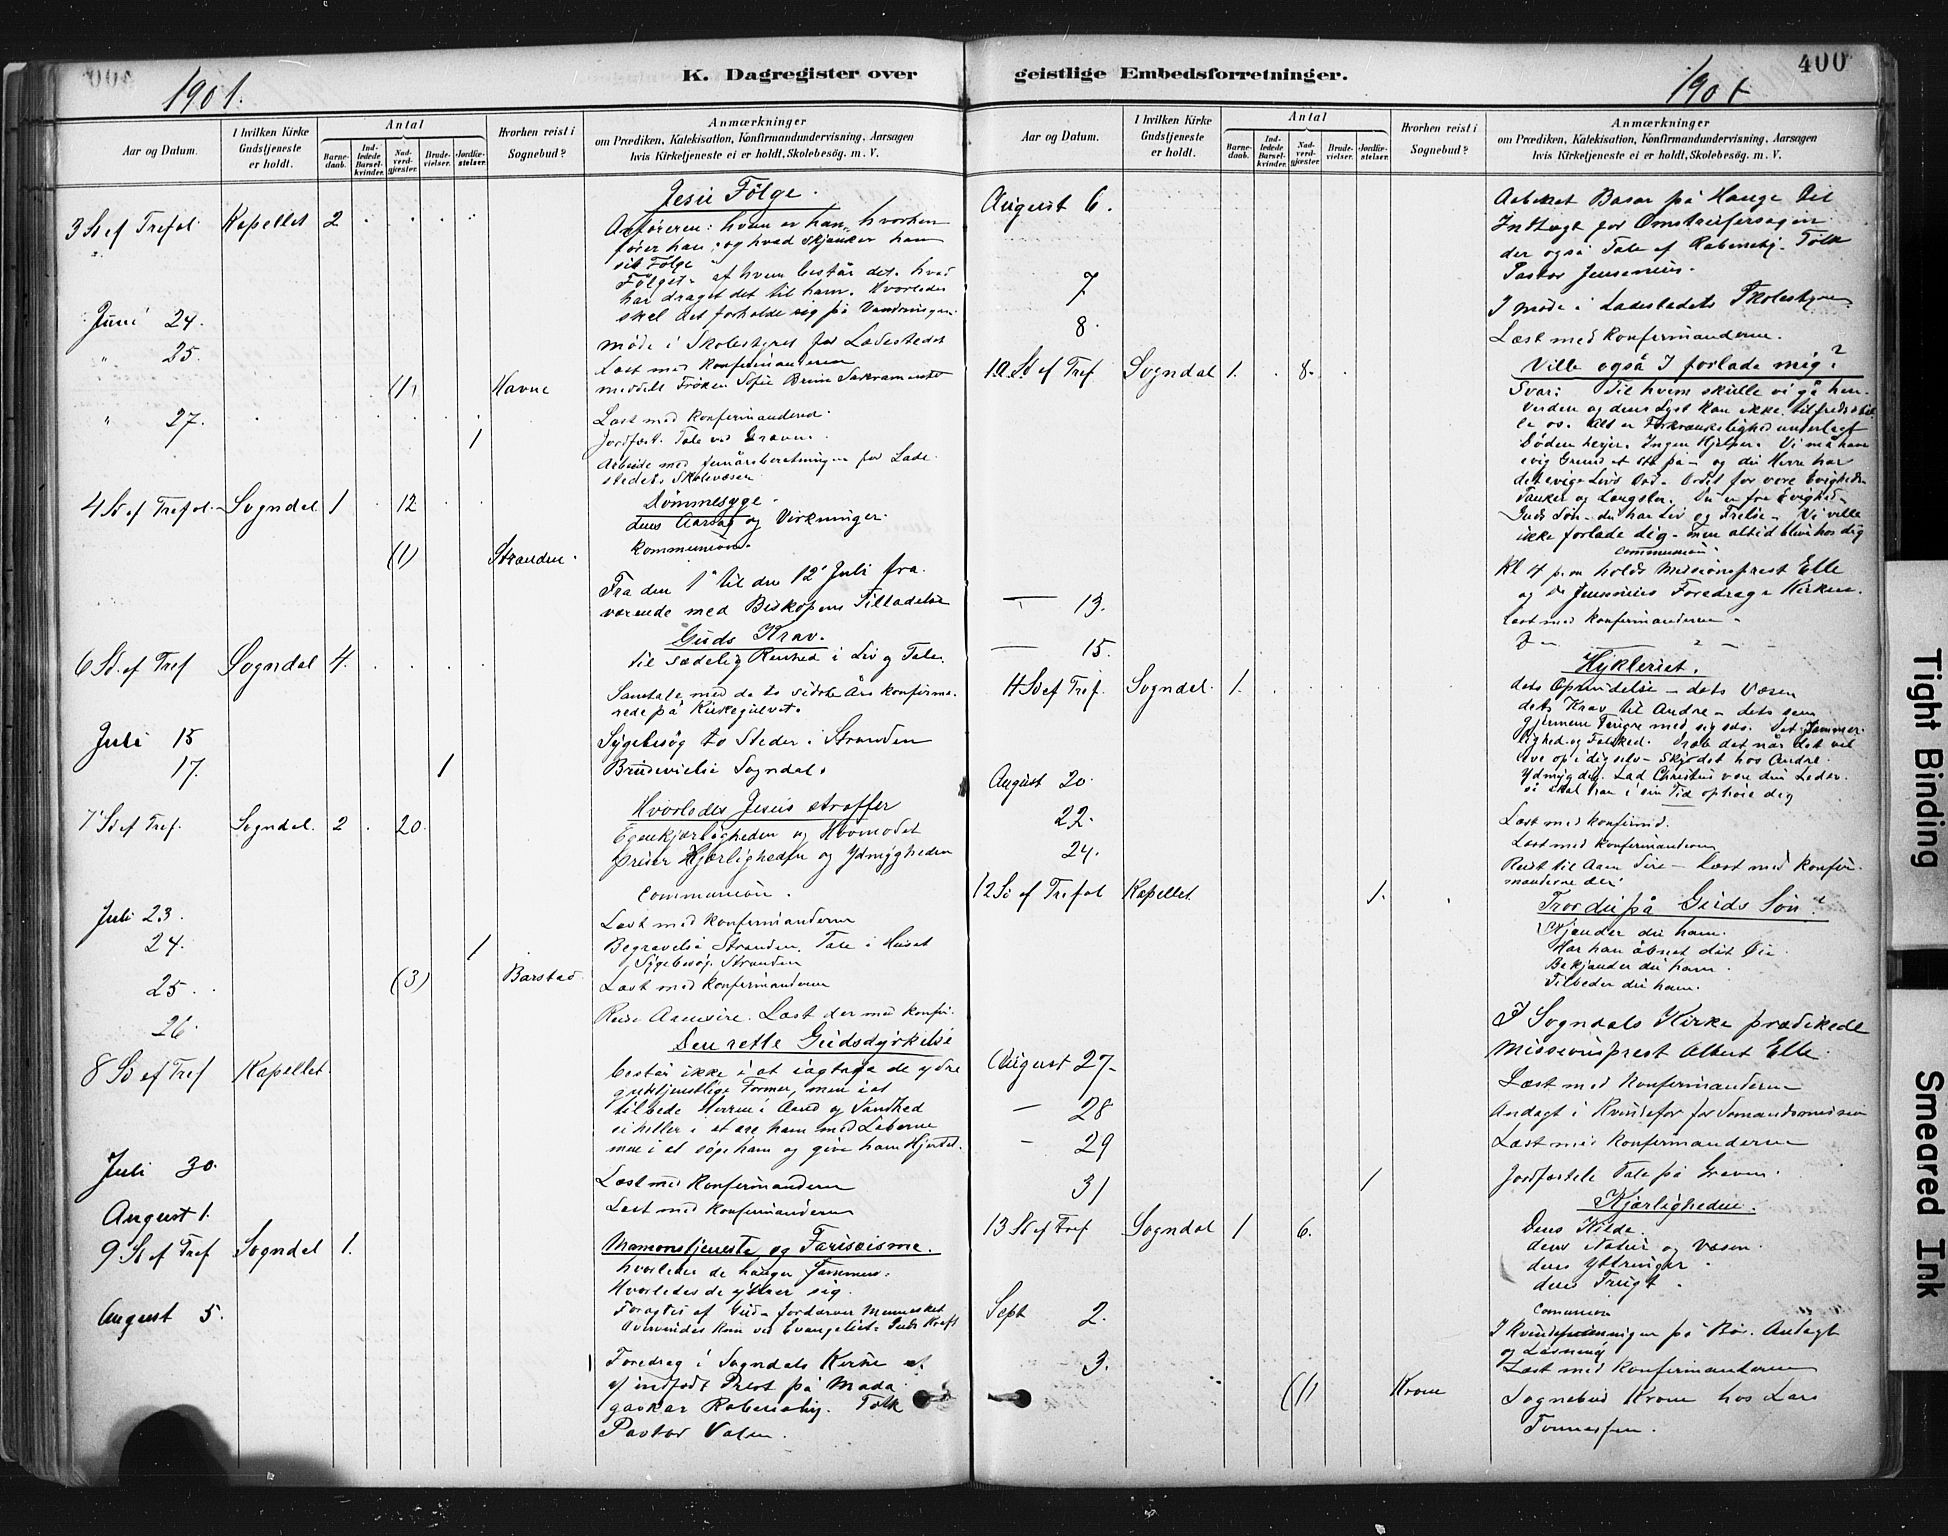 K. Dagregister over
geistlige Embedsforretninger.
400
1901.
1901
Aar og Datum.
I hvilken Kirke
Gudstjeneste
er holdt.
Antal
Barne-
daab.
Ind-
ledede
Barsel-
kvinder.
Nad-
verd-
gjæster.
Brude-
vielser.
Jordfæ-
stelser.
Hvorhen reist i
Sognebud?
Anmærkninger
om Prædiken, Katekisation, Konfirmandundervisning, Aarsagen
hvis Kirketjeneste ei er holdt, Skolebesøg. m. V.
Jesu Følge.
3 S ef Trefol. Kapellet 2
Anføreren: hvem er han, hvorhen
fører han og hvad skjænker han
sit Følge
Følget. af hvem består det. hvad
har draget det til ham. Hvorledes
skal det forholde sig på Vandringen.
Juni 24.
Møde i Skolestyret for Ladestedet
" 25.
Læst med Konfirmanderne
(1) Havne meddelt Frøken Sofie Sakramentet
" 27.
Læst med Konfirmanderne.
1 Jordfæst. Tale ved Graven.
Arbeide med femårsberetningen for Lade-
stedets Skolevæsen
4 S ef Trefol. Sogndal 1 12
Dømmesyge.
dens Aarsag og Virkninger.
Kommunion.
(1) Stranden.
Fra den 1 til den 12 Juli fra-
værende med Biskopens Tilladelse
Guds Krav.
6 S. ef Tref Sogndal 4.
til sædelig Renhed i Liv og Tale.
Samtale med de to sidste Års Konfirme-
rede på Kirkegulvet.
Juli 15
Sygebesøg to Steder i Stranden
17. 1
Brudevielse Sogndal.
Hvorledes Jesus straffer
7 S ef Tref. Sogndal. 2 20.
Egenkjærligheden og Hovmodet
Priser Kjærligheden og Ydmygheden
Communion.
Juli 23.
Læst med Konfirmanderne
24. 1
Begravelse Stranden. Tale i Huset
Sygebesøg Stranden
25. (3) Barstad
Læst med Konfirmanderne
26.
Reise Aanasire. Læst der med Konfir.
Den rette Gudsdyrkelse
8 S ef Tref Kapellet.
består ikke i at iagttage de ydre
gudstjenstlige Former, men i at
tilbede Herren i Aand og Sandhed
ei heller i at ære ham med Læberne
men i at søge ham og give ham Hjertet.
Juli 30.
Læst med Konfirmanderne
August 1.
Læst med Konfirmanderne
9 S ef Tref Sogndal 1.
Mamonstjeneste og Fariseisme.
hvorledes de hænger sammen.
Hvorledes de ytrer sig.
Foragtes af Gud - fordærver Mennesket
Overvindes kun ved Evangeliets Guds Kraft
August 5.
Foredrag i Sogndals Kirke af
indfødt Prest på Mada-
gaskar Tolk
Pastor Valen.
Aar og Datum.
I hvilken Kirke
Gudstjeneste
er holdt.
Antal
Barne-
daab.
Ind-
ledede
Barsel-
kvinder.
Nad-
verd-
gjester.
Brude-
vielser.
Jordfæ-
stelser.
Hvorhen reist i
Sognebud?
Anmærkninger
om Prædiken, Katekisation, Konfirmandundervisning, Aarsagen
hvis Kirketjeneste ei er holdt, Skolebesøg. m. V.
August 6.
Aabnet Basar på Hauge til
Indtægt for Omstreifersagen
der også Tale af Tolk
Pastor Jensenius.
7
I møde i Ladestedets Skolestyre
8.
Læst med Konfirmanderne.
10. S. ef Tref. Sogndal 1. 8.
Ville også I forlade mig?
Svar: Til hvem skulle vi gå hen.
Verden og dens Lyst kan ikke tilfredsstil-
le os. Alt er Forkrænkelighed underlagt
Døden seirer. Ingen Hjelper. Vi må have
evig Grund at stå på - og du Herre har
det evige Livs Ord. Ordet for vore Evigheds
Tanker og Længsler. Du er fra Evighed
Guds Søn - du har Liv og Frelse - Vi ville
ikke forlade dig - men altid blive hos dig
Communion.
Kl 4 p.m holdt Missionsprest Elle
og Jensenius Foredrag i Kirken.
— 13.
Læst med Konfirmanderne
— 15.
11 S ef Tref. Sogndal. 1.
Hykleriet.
dets Oprindelse - dets Væsen
dets Krav til Andre - dets som
dig selv - Skjødet hos Andre.
Ydmyg dig. Lad Christus være din Leder.
så skal han i sin Tid ophøie dig
August 20.
Læst med Konfirmd.
22.
Læst med Konfirmanderne
24.
Reist til Aana Sire - Læst med Konfir-
manderne der.
12 S ef Trefol Kapellet 1.
Tror du på Guds Søn?
Kjender du ham.
Har han åbnet dit Øie.
Bekjender du ham.
Tilbeder du ham.
I Sogndals Kirke prædikede
Missionsprest Albert Elle.
August 27-
Læst med Konfirmanderne
— 28
Andagt i Kvindefor for Sømandsmission
— 29
Læst med Konfirmanderne
31 1
Jordfæstelse Tale på Graven.
13 S ef Tref Sogndal 1 6.
Kjærligheden.
Dens Kilde.
dens Natur og Væsen.
dens Yttringer
dens Frugt.
Comunion
Sept 2.
I Kvindeforeningen på Bø. Andagt
og Læsning
3.
Læst med Konfirmanderne
(1) Krone
Sognebud Krone hos Lars
Tønnessen.
Tight Binding
Smeared Ink